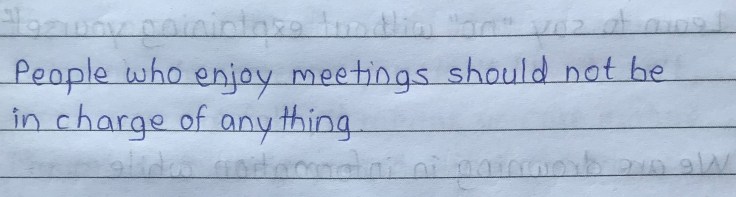 People who enjoy meetings should not be
in charge of anything